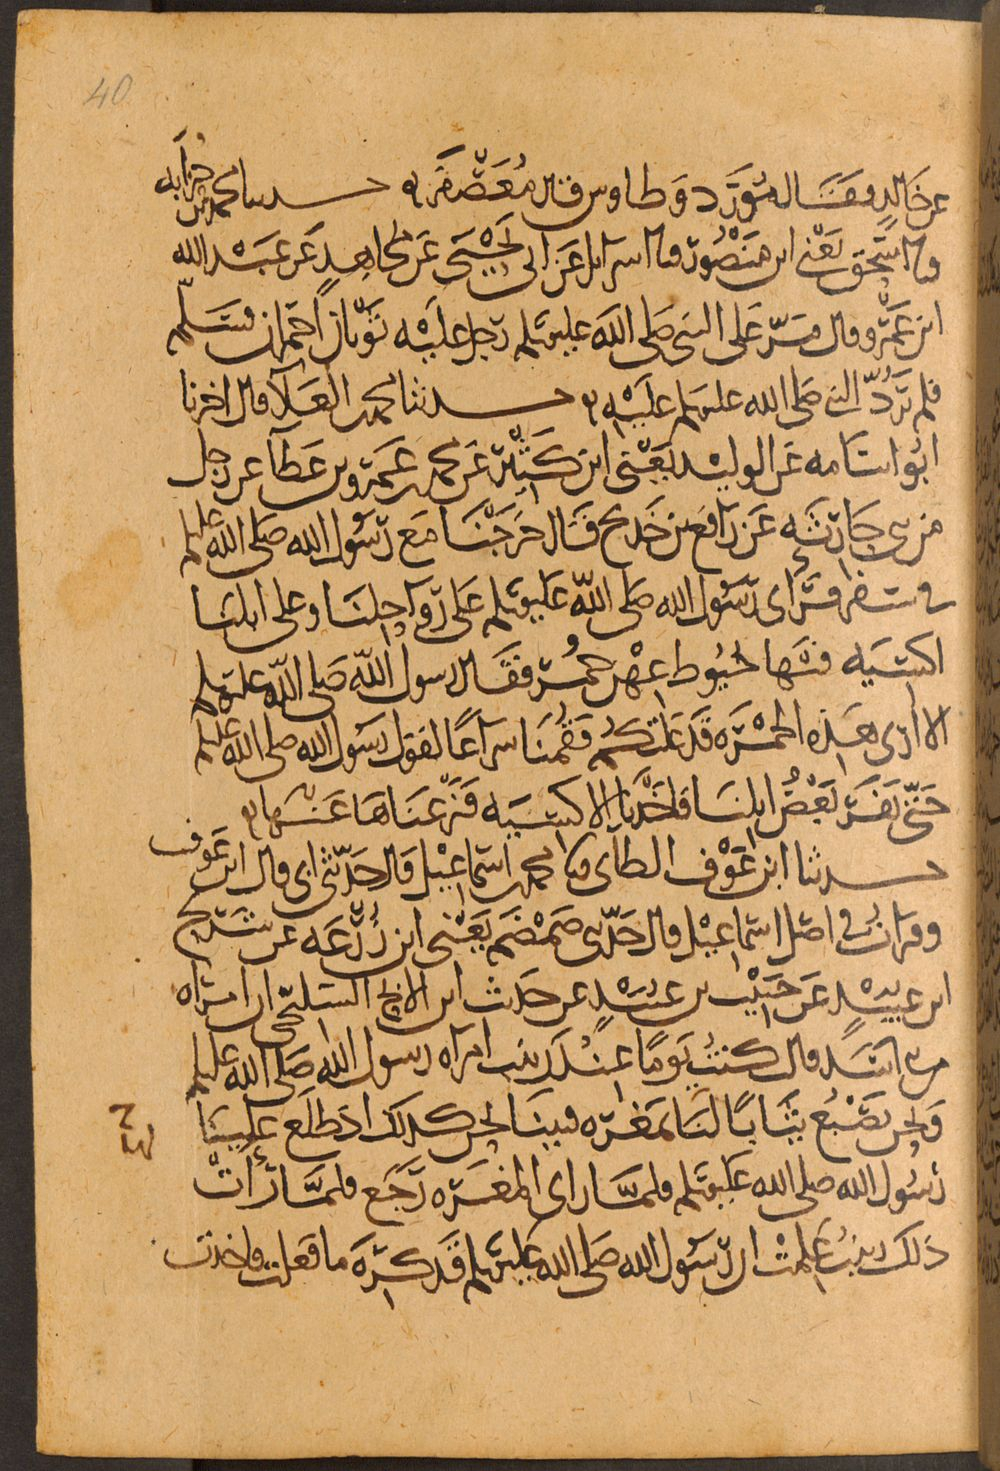 40
عن خالد فقال مورد وطاوس قال معصفر حدثنا محمد بن حزابه
نا اسحق يعني ابن منصور نا اسرايل عن ابي يحيى عن مجاهد عن عبد الله
ابن عمرو قال مر على النبي صلى الله عليه وسلم رجل عليه ثوبان احمران فسلم
فلم يرد النبي صلى الله عليه وسلم عليه حدثنا محمد بن العلا قال اخبرنا
ابو اسامه عن الوليد يعني ابن كثير عن محمد بن عمرو بن عطا عن رجل
من بني حارثه عن رافع بن خديج قال خرجنا مع رسول الله صلى الله عليه وسلم
في سفر فراى رسول الله صلى الله عليه وسلم على رواحلنا وعلى ابلنا
اكسيه فيها خيوط عهن حمر فقال رسول الله صلى الله عليه وسلم
الا ارى هذه الحمره قد علتكم فقمنا سراعا لقول رسول الله صلى الله عليه وسلم
حتى نفر بعض ابلنا فاخذنا الاكسيه فنزعناها عنها
حدثنا ابن عوف الطاي نا محمد بن اسماعيل قال حدثني ابي قال ابن عوف
وقرات في اصل اسماعيل قال حدثني ضمضم يعني ابن زرعه عن شريح
ابن عبيد عن حبيب بن عبيد عن حديث ابن الابح السليحي ان امراه
من بني اسد قال كنت يوما عند زينب امراه رسول الله صلى الله عليه وسلم
ونحن نصبغ ثيابا لنا بمغره فبينا نحن كذلك اذ طلع علينا
رسول الله صلى الله عليه وسلم فلما راى المغره رجع فلما رات
ذلك زينب علمت ان رسول الله صلى الله عليه وسلم قد كره ما فعلت واخذت